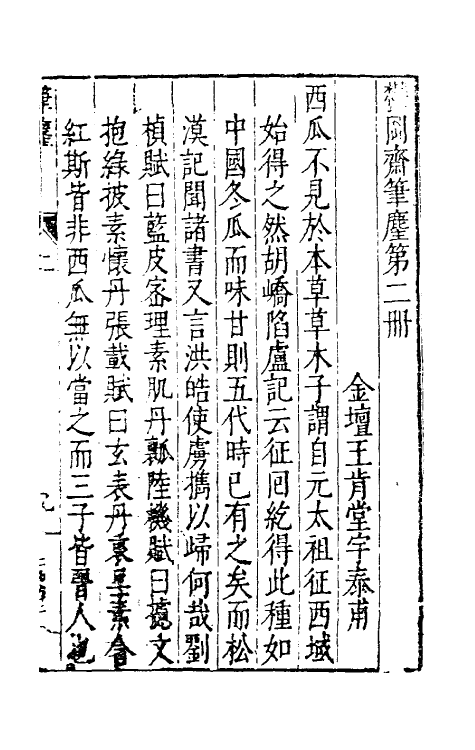 鬱岡齋筆麈第二冊
金壇王肯堂宇泰甫
西瓜不見於本草草木子謂自元太祖征西域
始得之然胡嶠陷盧記云征囘紇得此種如
中國冬瓜而味甘則五代時已有之矣而松
漠記聞諸書又言洪皓使虜攜以歸何哉劉
楨賦曰藍皮密理素肌丹瓤陸機賦曰攄文
抱綠披素懷丹張載賦曰玄表丹裏呈素含
紅斯皆非西瓜無以當之而三子皆晉人也
筆麈
二